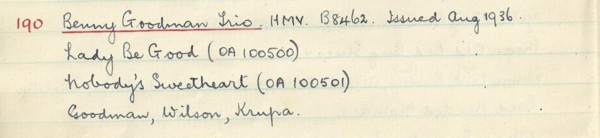 190 Benny Goodman Trio. HMV. B8462. Issued Aug 1936.
Lady Be Good (OA 100500)
Nobody's Sweetheart (OA 100501)
Goodman, Wilson, Krupa.